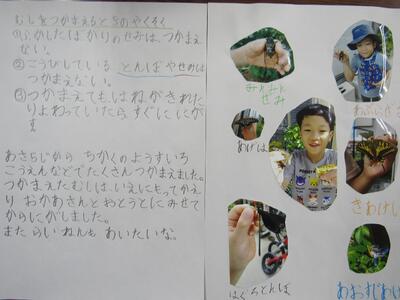 むしをつかまえるときのやくそく
①うかしたばかりのせみは、つかまえ
ない。
②こうびしている とんぼやせみは
つかまえない。
③つかまえてもはねがきれた
りよわっていたらすぐににが
す
あさ5じから ちかくのようすいろ
こうえんなどでたくさんつかまえました。
つかまえたむしは、いえにもってかえ
り おかあさんとおとうとにみせて
からにがしました。
また らいねんも あいたいな。
みんみん
ぜみ
あげは
はぐろとんぼ
きあげは
あおすじあげ